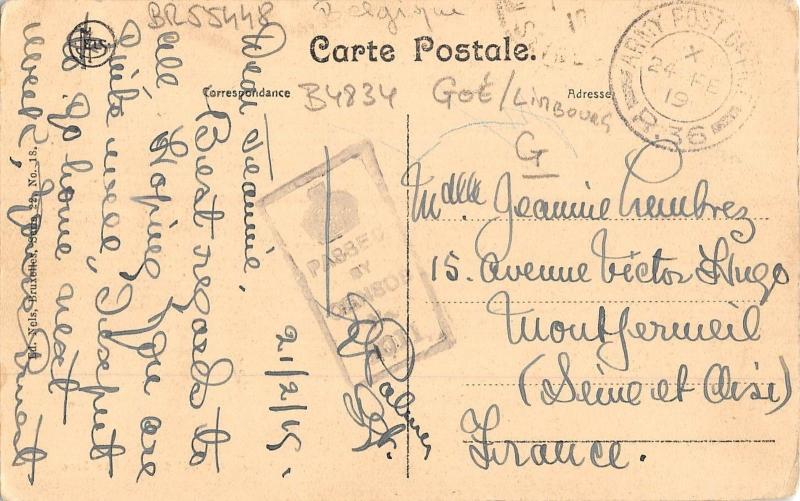 BR55448 Belgique
Carte Postale.
Correspondance
B4834 Goé/LIMBOURG
Adresse
G
ARMY POST OFFICE
X
24 FE
19
R.36
PASSED
BY
CENSOR
Dear Jeannie,
Best regards to
all Hoping you are
quite well, I expect
to go home next
week,
21/2/19.
Mdelle Jeannie
15. Avenue Victor Hugo
Montfermeil
(Seine et Oise)
France.
Ed. Nels, Bruxelles, Série 22, No. 18.
NELS